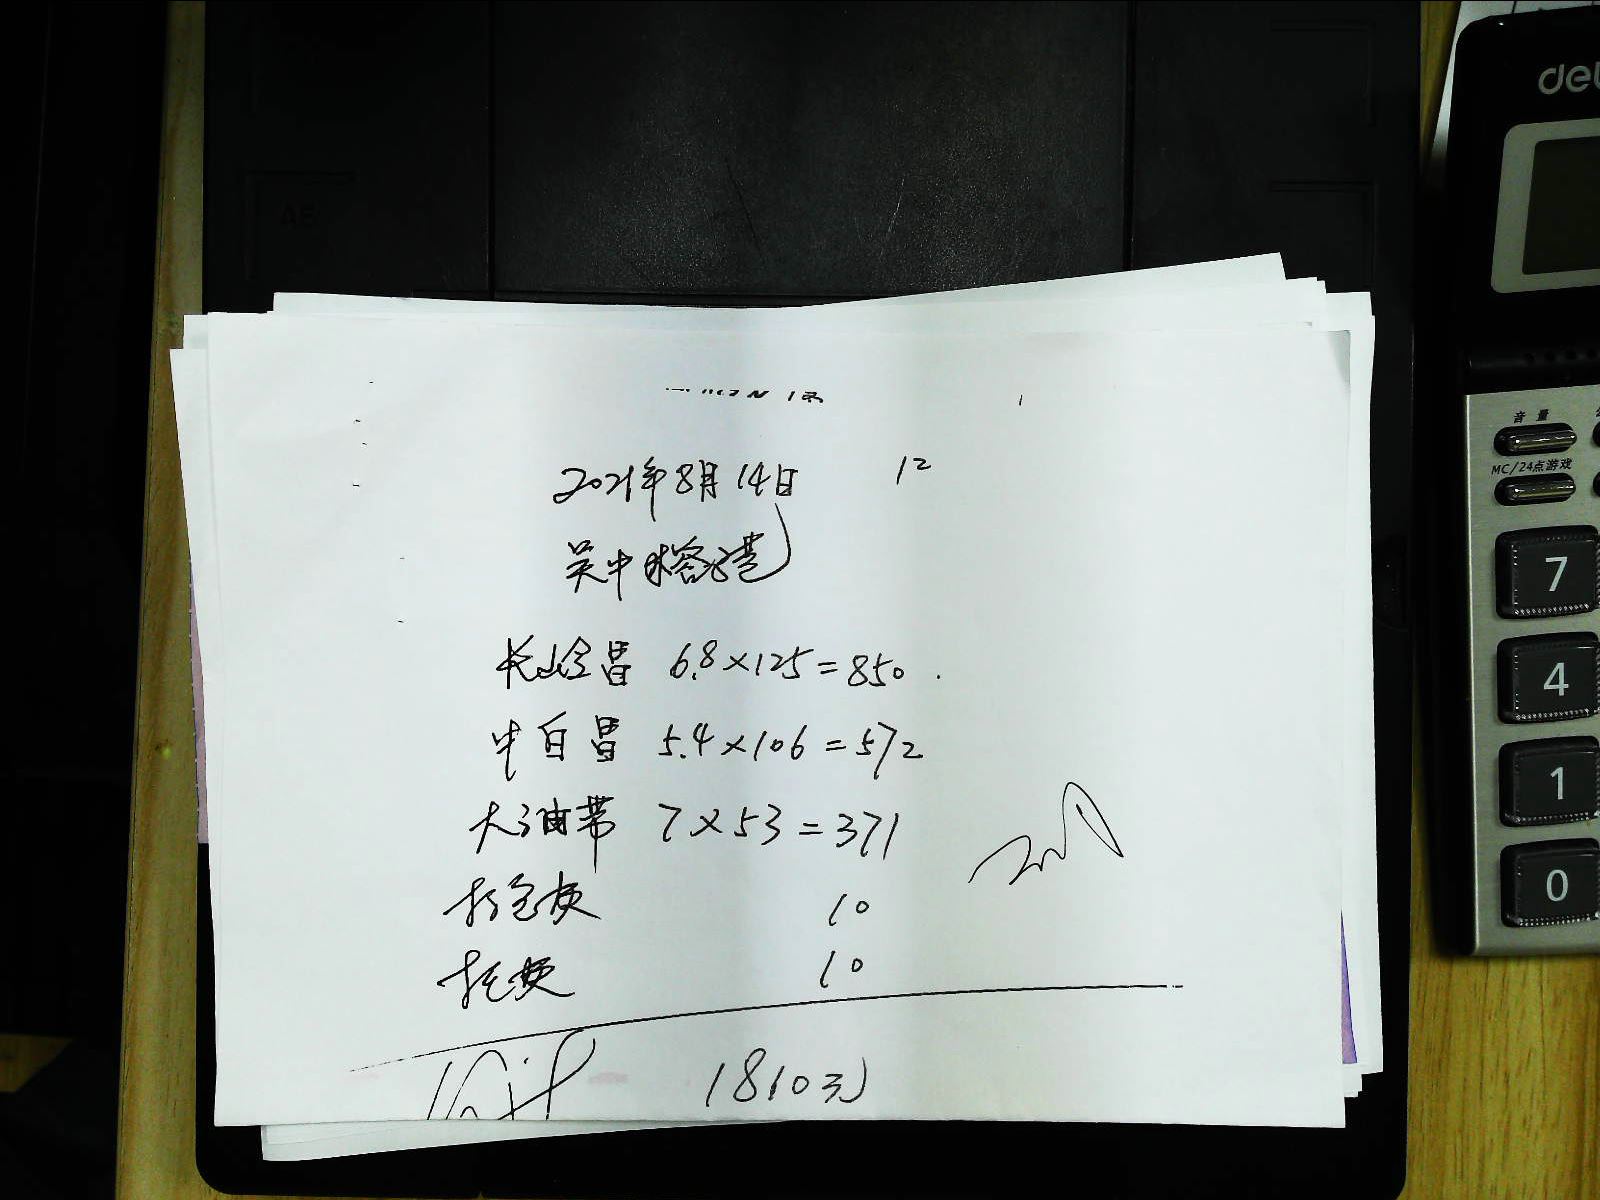 2021年8月14日 12
吴中
长 6.8×125=850
中白昌 5.4×106=572
大油带 7×53=371
打包费 10
托费 10
1810元
deli
音量
MC/24点游戏
7
4
1
0
A5